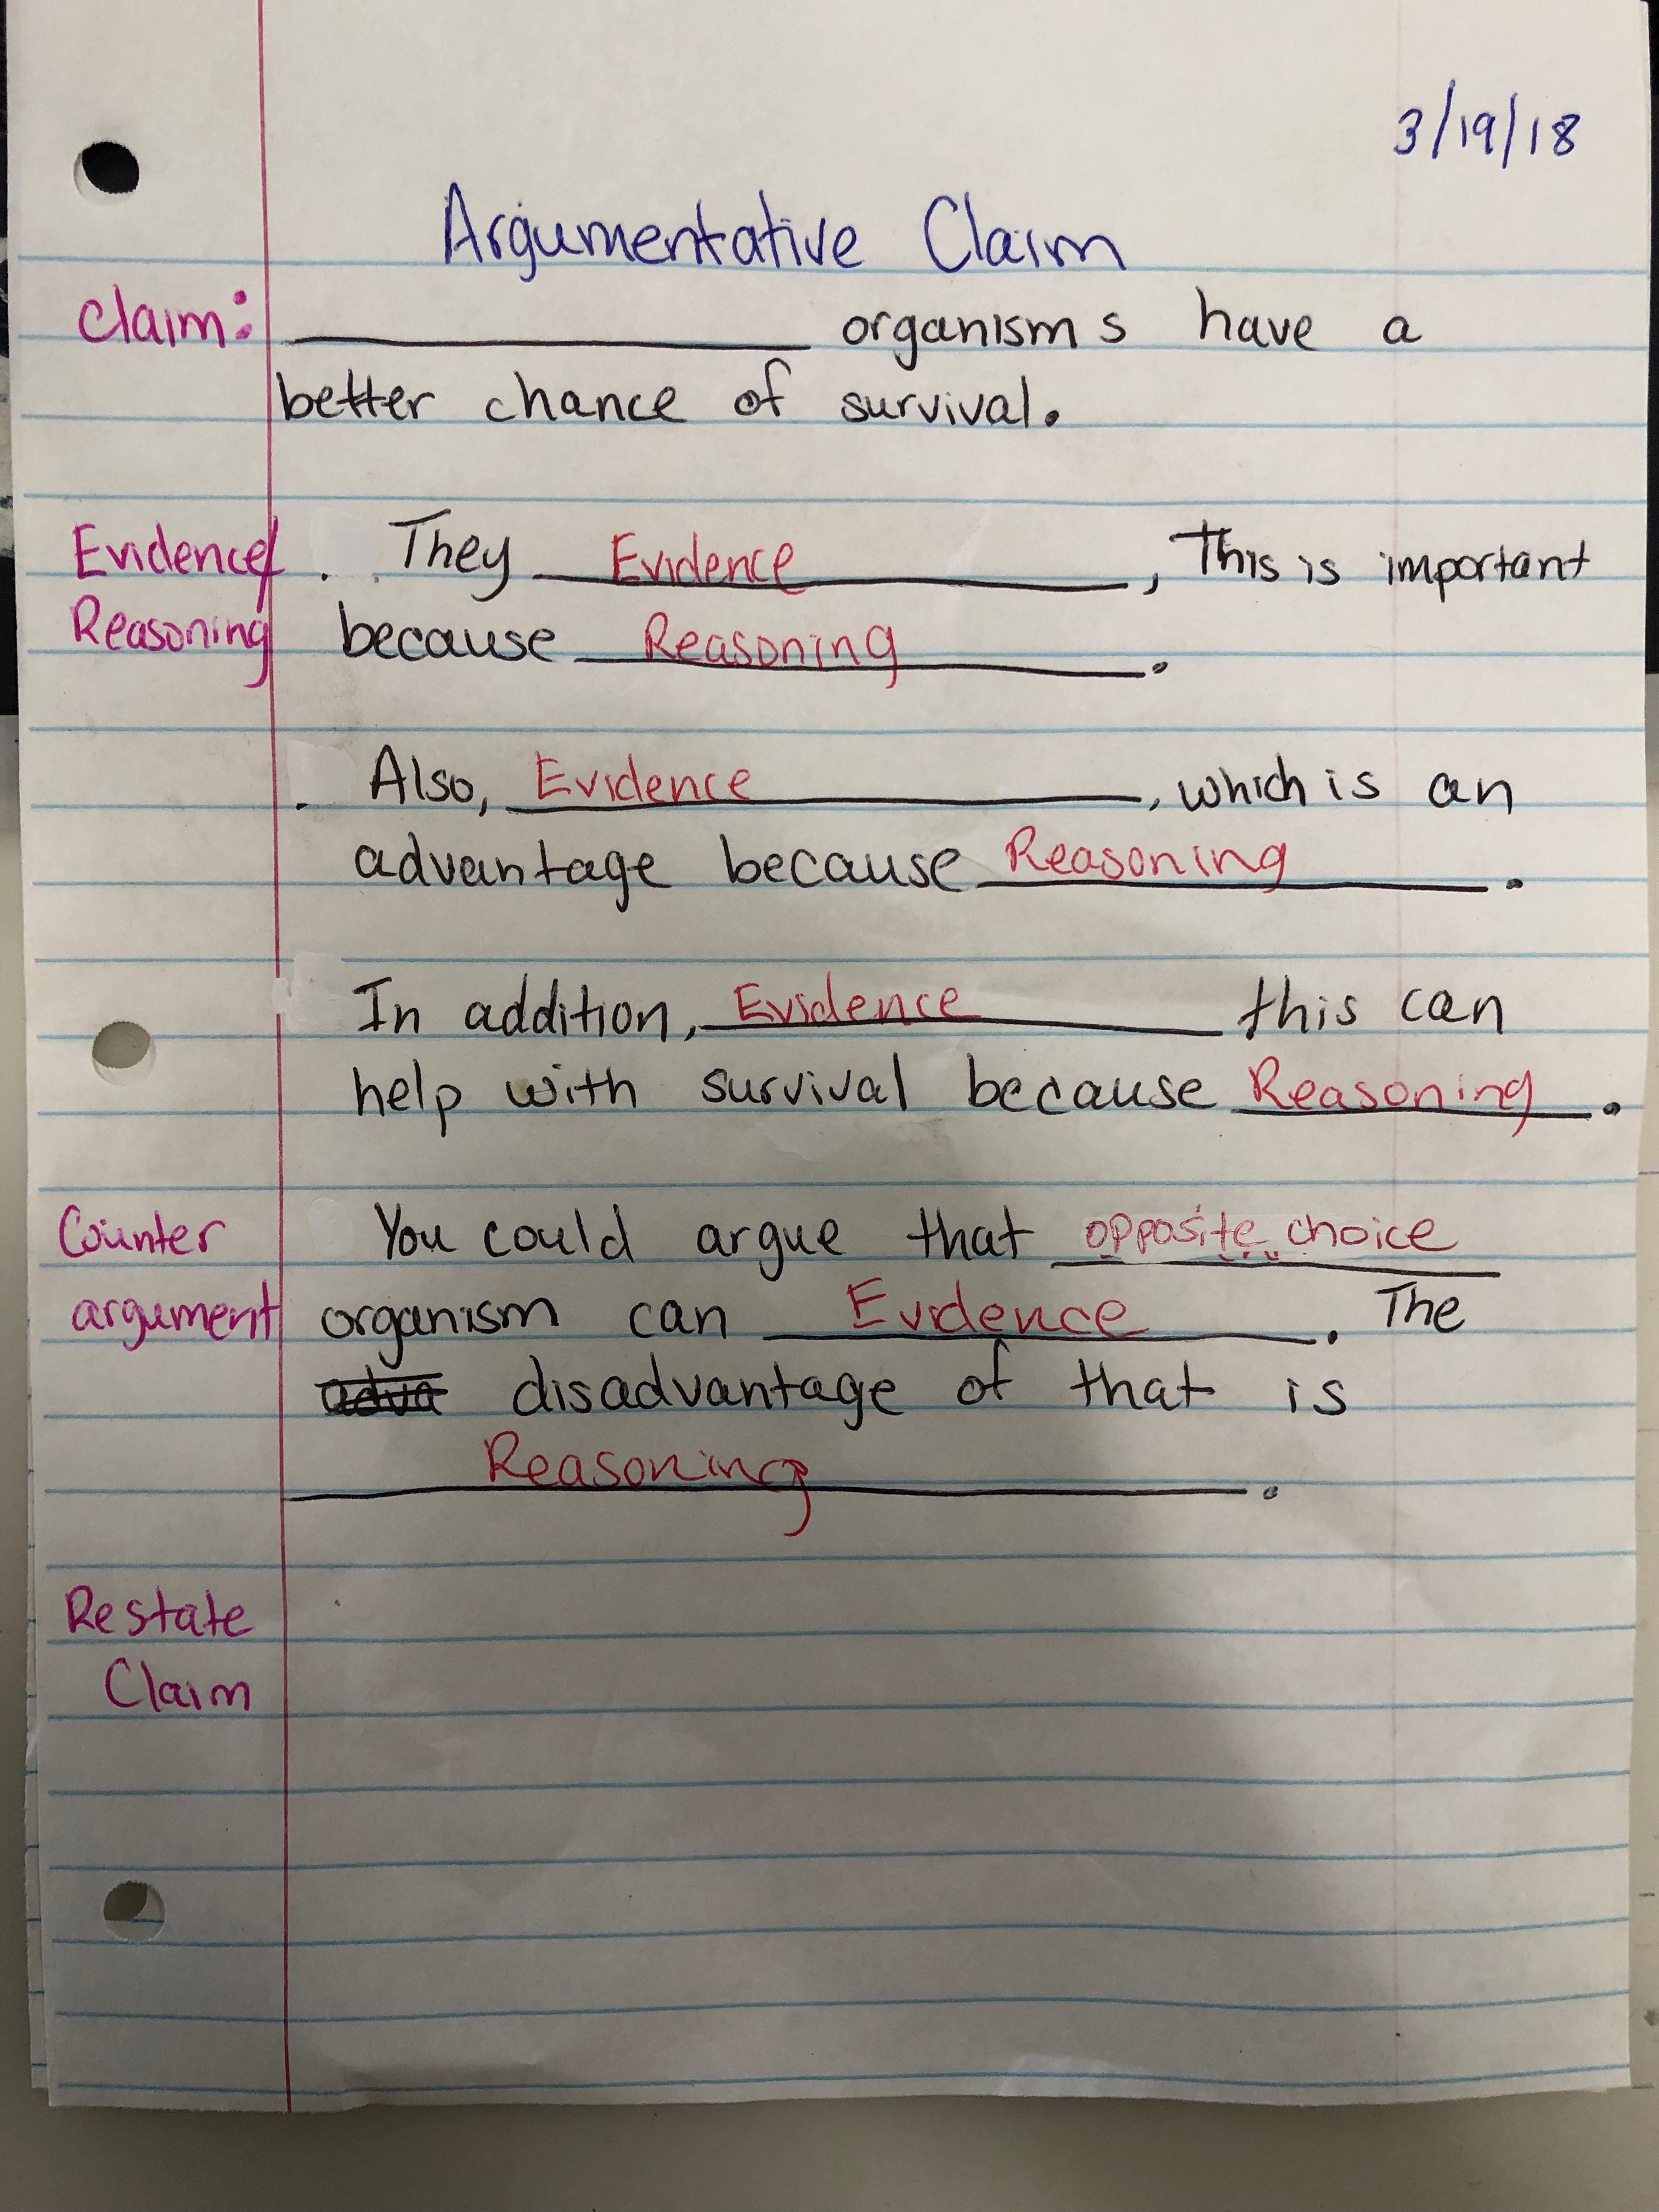 3/19/18
Argumentative Claim
Claim: ____________ organisms have a
better chance of survival.
Evidence/ They Evidence, This is important
Reasoning because Reasoning.
Also, Evidence, which is an
advantage because Reasoning.
In addition, Evidence this can
help with survival because Reasoning.
Counter You could argue that opposite choice
argument organism can Evidence. The
adva disadvantage of that is
Reasoning.
Restate
Claim